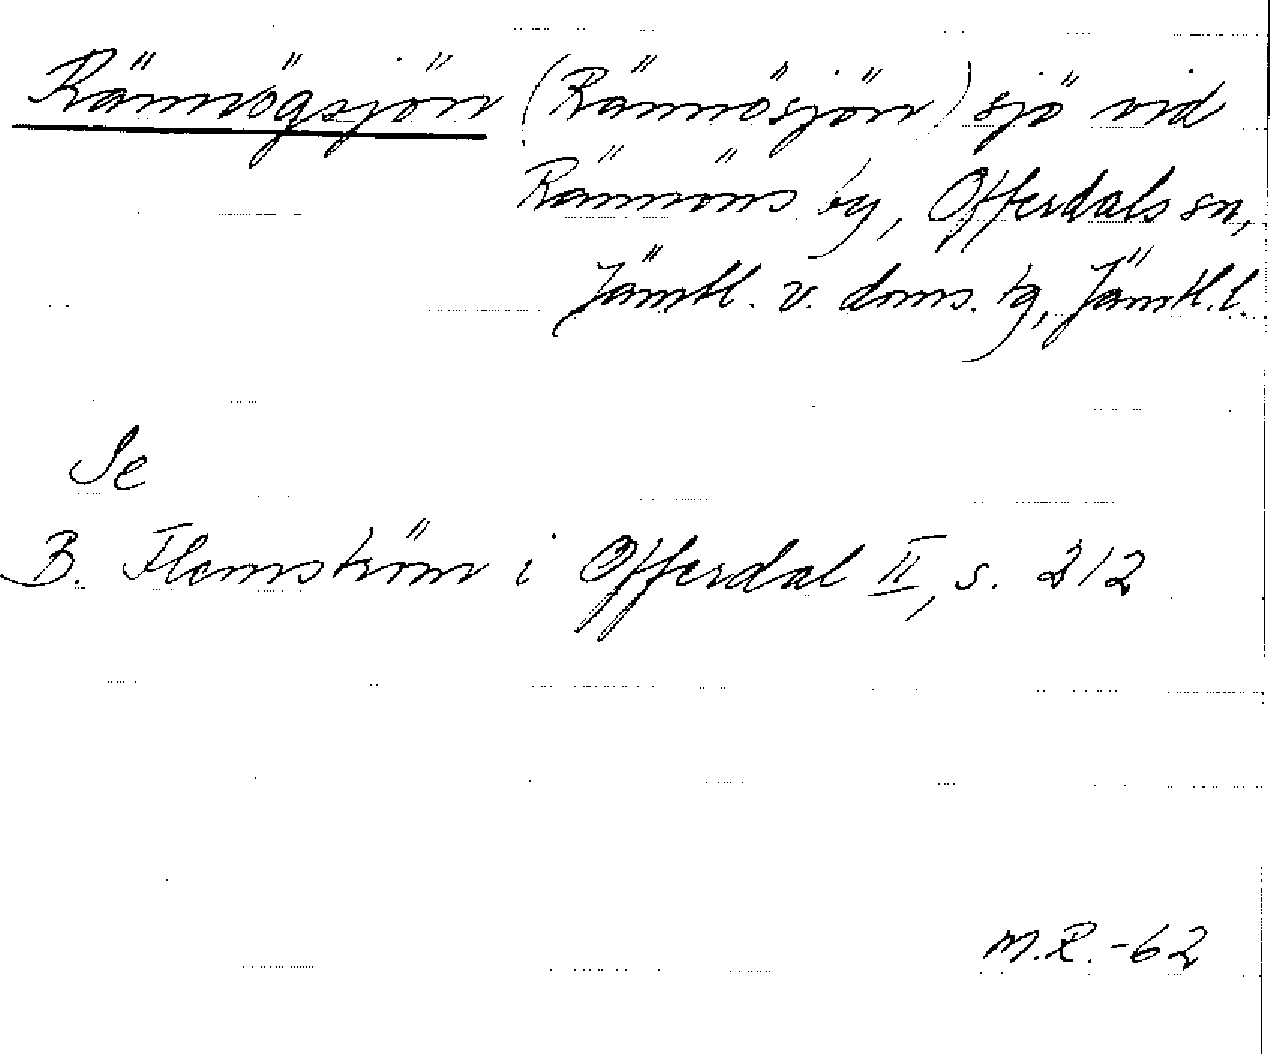 Rännögsjön (Rännösjön) sjö vid
Rännöns by, Offerdals sn,
Jämtl. v. doms. tg, Jämtl. l.
Se
B. Flemström i Offerdal II, s. 212
M.R. -62